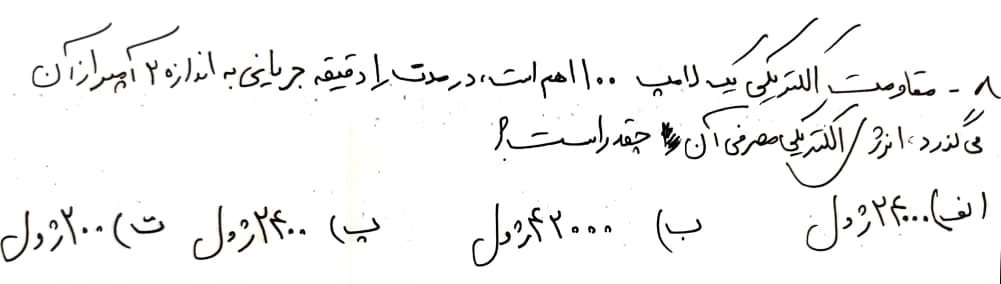 ۸ - مقاومت الکتریکی یک لامپ ۱۰۰ اهم است، در مدت ۱ دقیقه جریانی به اندازه ۲ آمپر از آن
می گذرد، انرژی الکتریکی مصرفی آن چقدر است؟
الف) ۲۴۰۰۰ ژول ب) ۴۲۰۰۰ ژول پ) ۲۴۰۰ ژول ت) ۲۰۰ ژول